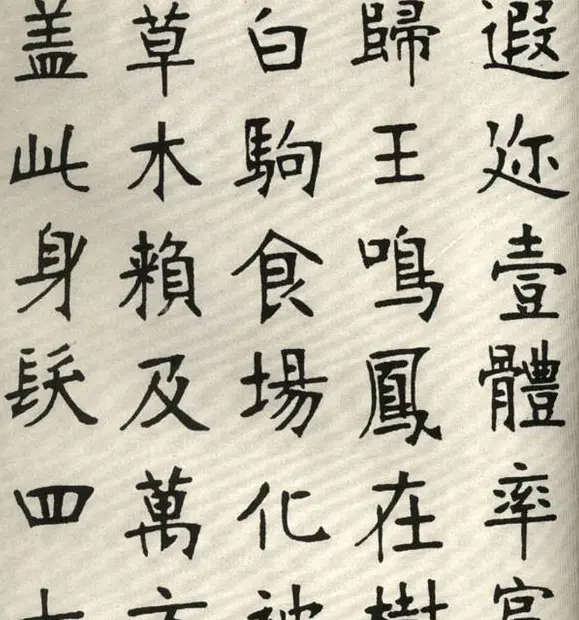 遐迩壹體率賓
歸王鳴鳳在樹
白駒食場化被
草木賴及萬方
盖此身髪四大